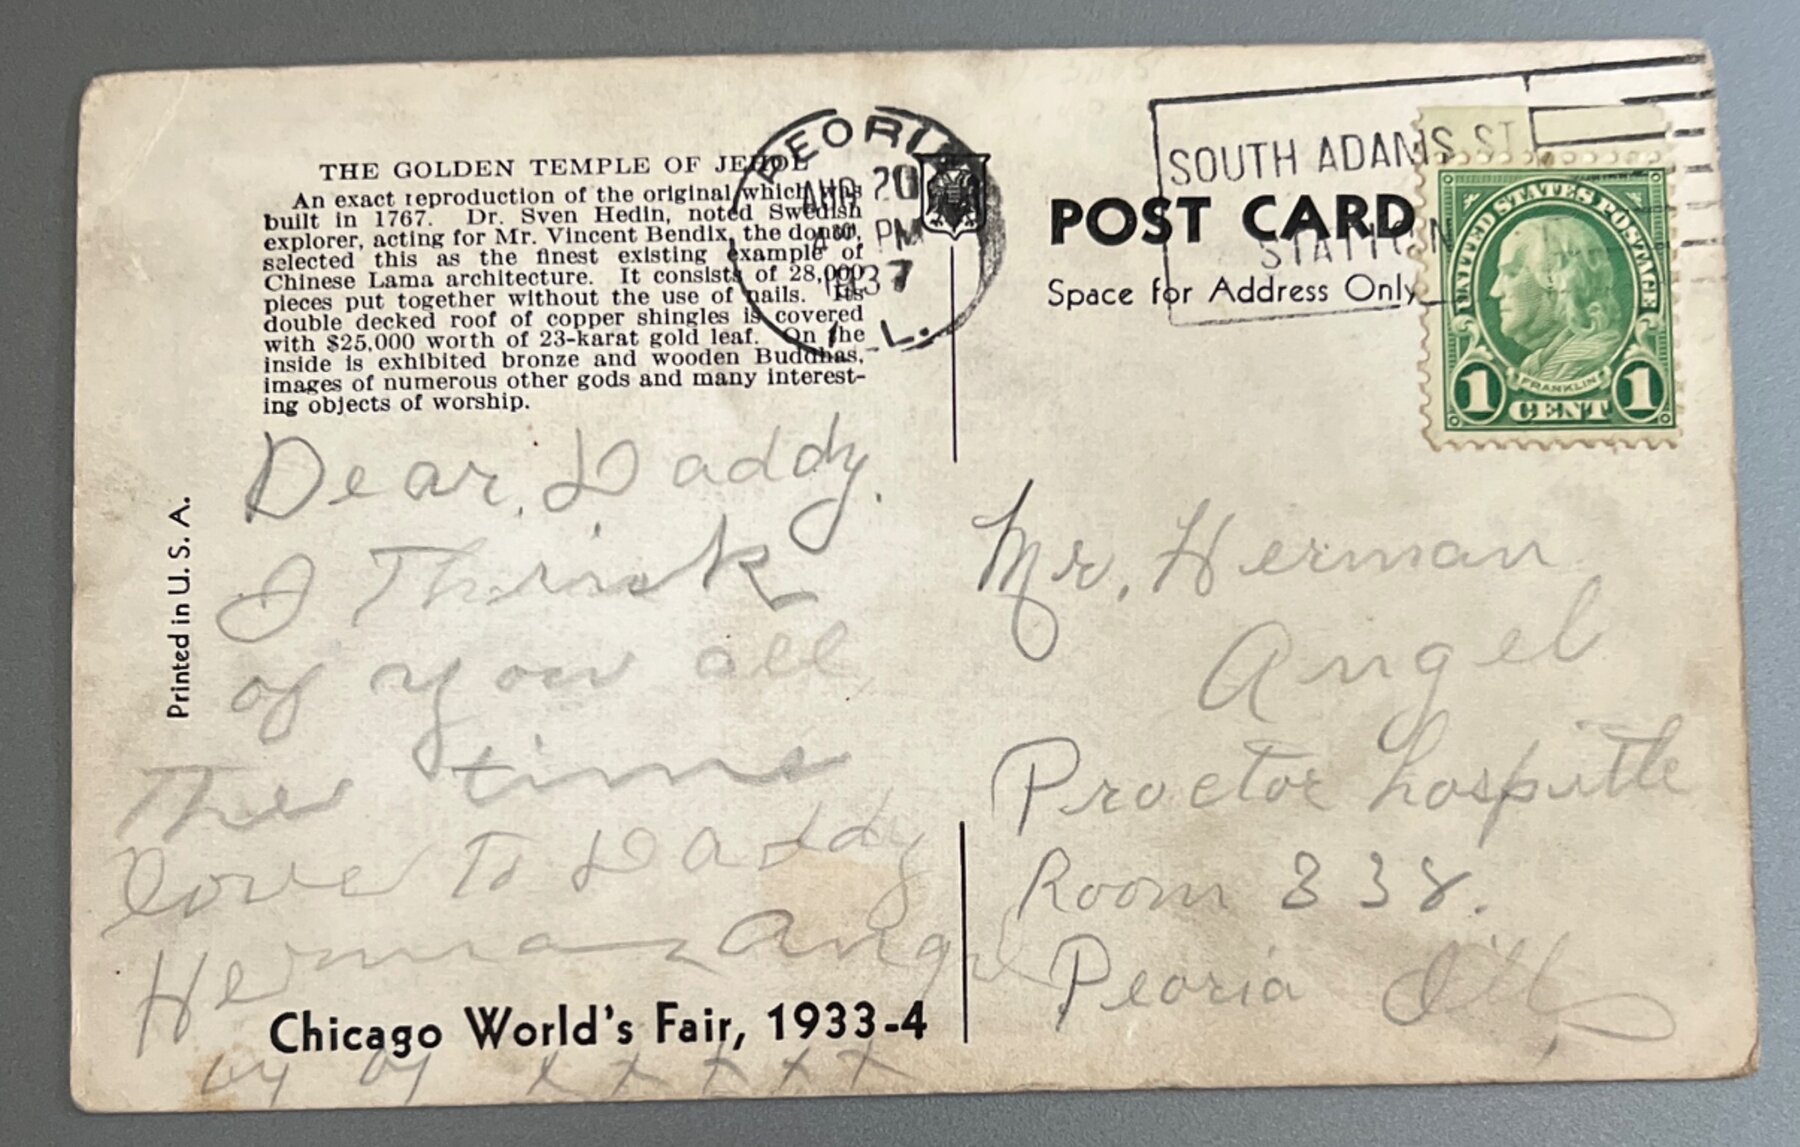 THE GOLDEN TEMPLE OF JEHOL
An exact reproduction of the original which was
built in 1767. Dr. Sven Hedin, noted Swedish
explorer, acting for Mr. Vincent Bendix, the donor,
selected this as the finest existing example of
Chinese Lama architecture. It consists of 28,000
pieces put together without the use of nails. Its
double decked roof of copper shingles is covered
with $25,000 worth of 23-karat gold leaf. On the
inside is exhibited bronze and wooden Buddhas,
images of numerous other gods and many interest-
ing objects of worship.
Printed in U. S. A.
Dear, Daddy.
I Think
of you all
The time
love To Daddy
Herman Angel
Chicago World's Fair, 1933-4
by by x x x x x
PEORIA
AUG 20
PM
1937
ILL.
SOUTH ADAMS ST.
STATION
POST CARD
Space for Address Only
UNITED STATES POSTAGE
FRANKLIN
1 CENT 1
Mr. Herman
Angel
Proctor hospitle
Room 338.
Peoria Ill,